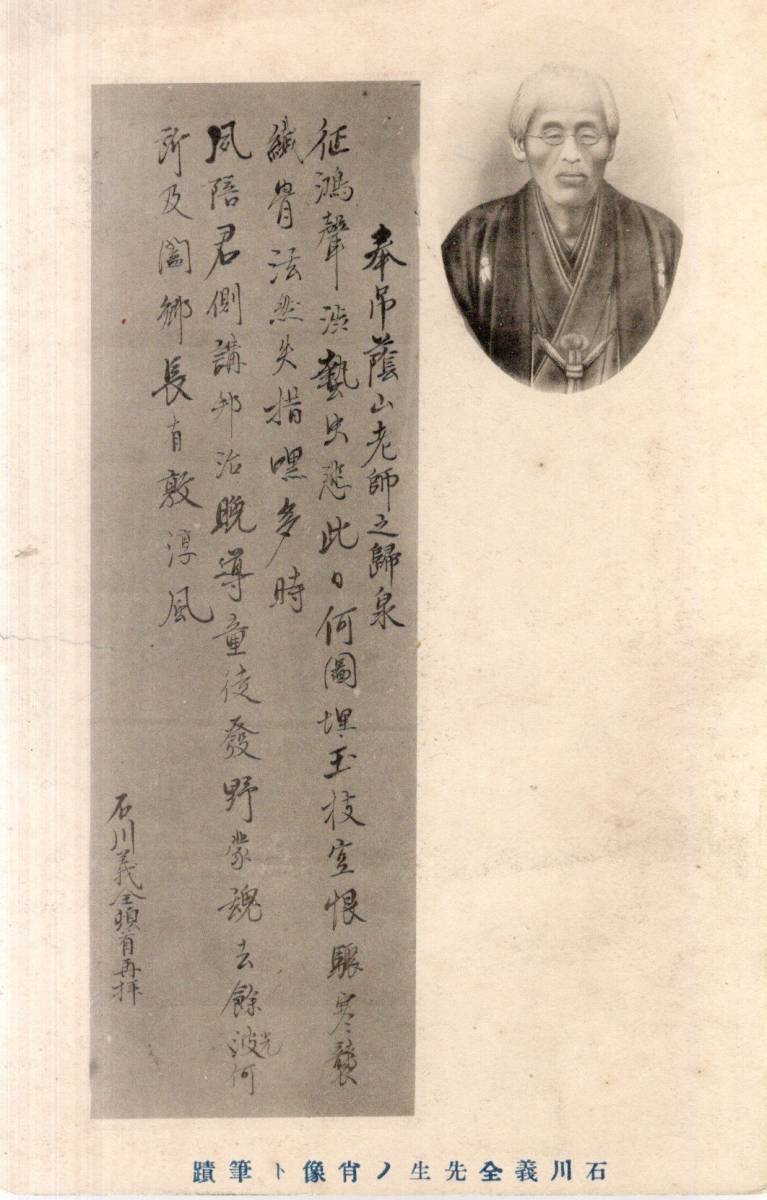 奉吊蔭山老師之歸泉
征鴻聲渋藝虫悲此日何圖埋玉枝空恨驟寒襲
纎骨泫然失措嘿多時
夙陪君側講邦治晩導童徒發野蒙魂去餘波光何
所及闔郷長有敦淳風
石川義全頓首再拝
石川義全先生ノ肖像ト筆蹟